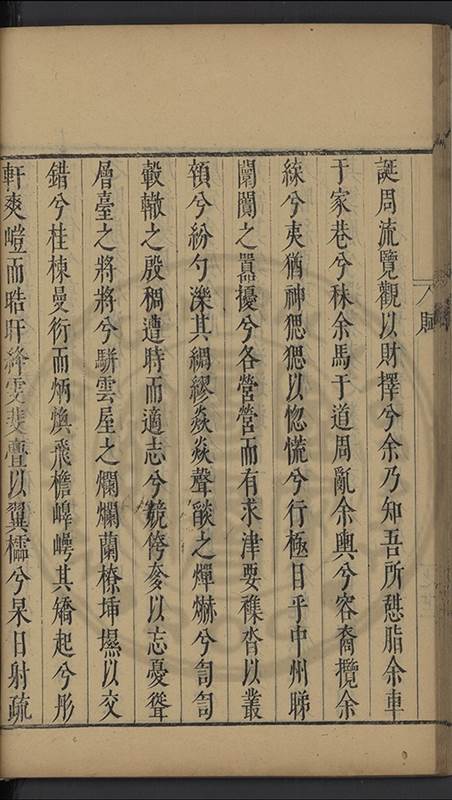 誕周流覽觀以財擇兮余乃知吾所憇脂余車
于家巷兮秣余馬于道周亂余輿兮容裔攬余
綠兮夷猶神愢愢以惚慌兮行極日乎中州睇
闤闠之囂擾兮各營營而有求津要穕沓以叢
領兮紛勺濼其綢繆焱焱聲燄之燀爀兮訇訇
轂轍之殷稠遭時而適志兮競侉奓以忘憂聳
層臺之將將兮騈雲屋之爛爛蘭橑坲㙷以交
錯兮桂棟曼衍而炳煥飛檐嶂㟧其矯起兮彤
軒爽嵦而晧旰絳雯斐亹以翼櫺兮杲日射疏